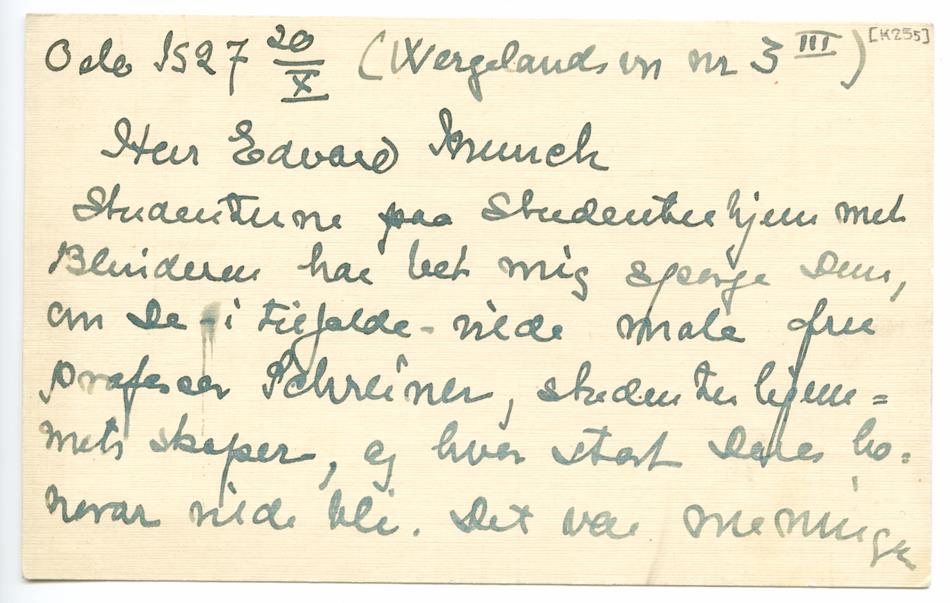 Oslo 1927 20/X (Wergelandsvn nr 3 III) [K255]
Herr Edvard Munch
Studenterne paa Studenterhjemmet
Blindern har bet mig spørge Dem,
om De - i tilfælde - vilde male fru
professor Schreiner, studenterhjem=
mets skaper, og hvor stort Deres ho=
norar vilde bli. Det var meningen